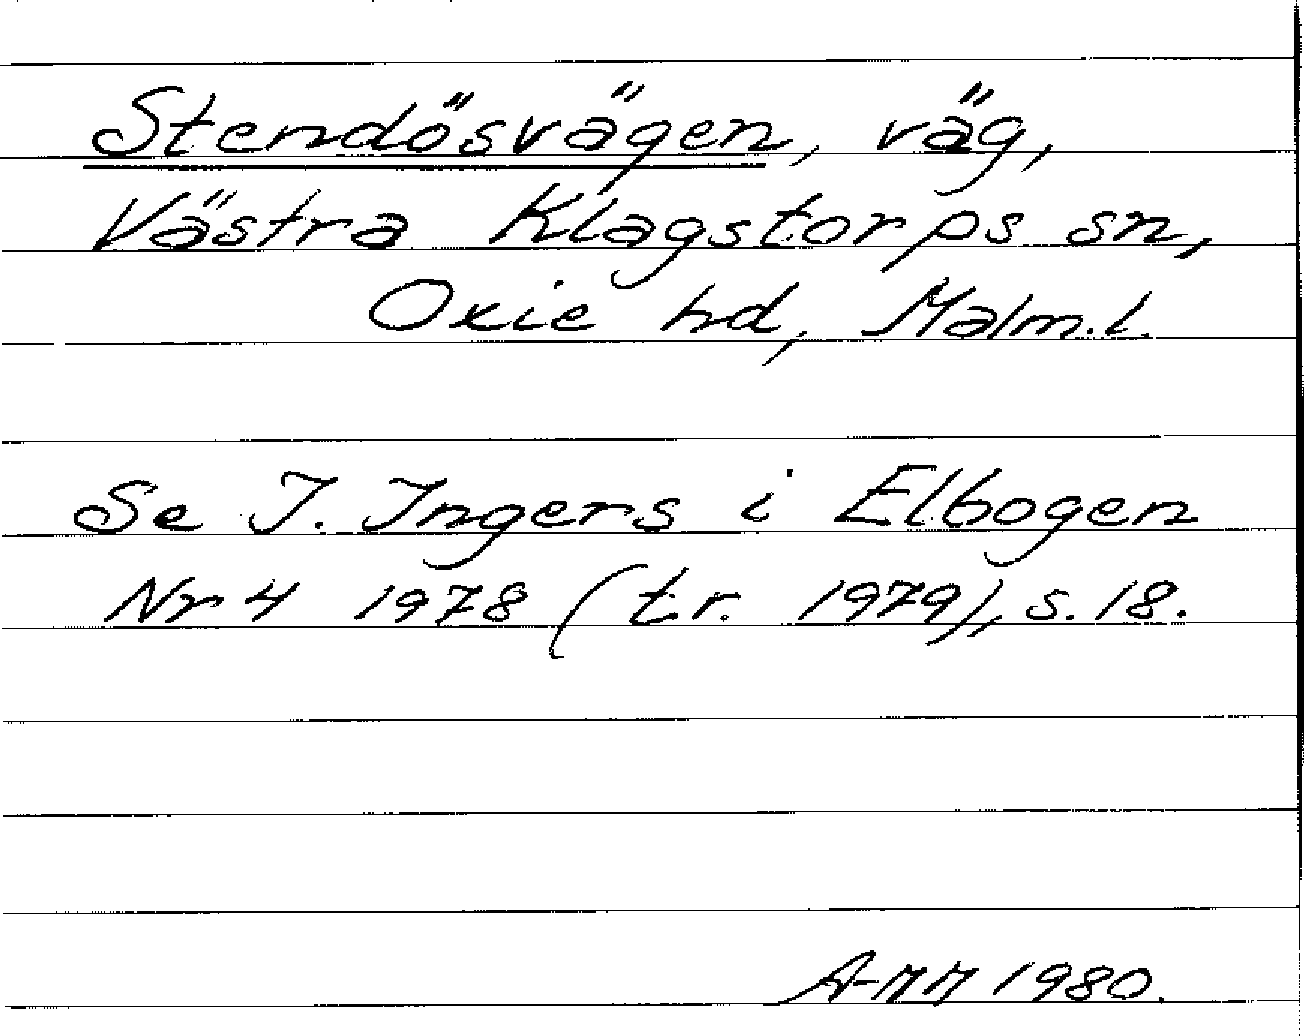 Stendösvägen, väg,
Västra Klagstorps sn,
Oxie hd, Malm.l.
Se I. Ingers i Elbogen
Nr 4 1978 (tr. 1979), s. 18.
A-MM 1980.